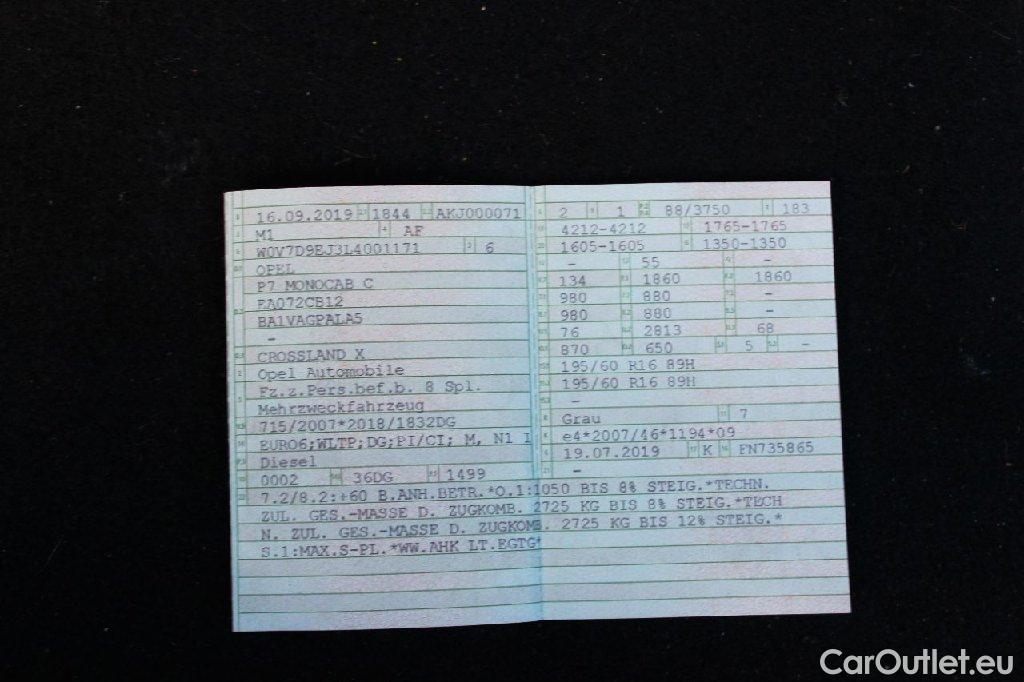 16.09.2019 1844 AKJ000071
M1 AF
W0V7D9EJ3L4001171 6
OPEL
P7 MONOCAB C
EA072CB12
BA1VAGPALA5
-
CROSSLAND X
Opel Automobile
Fz.z.Pers.bef.b. 8 Spl.
Mehrzweckfahrzeug
715/2007*2018/1832DG
EURO6;WLTP;DG;PI/CI; M, N1 I
Diesel
0002 36DG 1499
2 1 88/3750 183
4212-4212 1765-1765
1605-1605 1350-1350
- 55 -
134 1860 1860
980 880 -
980 880 -
76 2813 68
870 650 5 -
195/60 R16 89H
195/60 R16 89H
-
Grau 7
e4*2007/46*1194*09
19.07.2019 K FN735865
-
7.2/8.2:+60 B.ANH.BETR.*O.1:1050 BIS 8% STEIG.*TECHN.
ZUL. GES.-MASSE D. ZUGKOMB. 2725 KG BIS 8% STEIG.*TECH
N. ZUL. GES.-MASSE D. ZUGKOMB. 2725 KG BIS 12% STEIG.*
S.1:MAX.S-PL.*WW.AHK LT.EGTG*
CarOutlet.eu